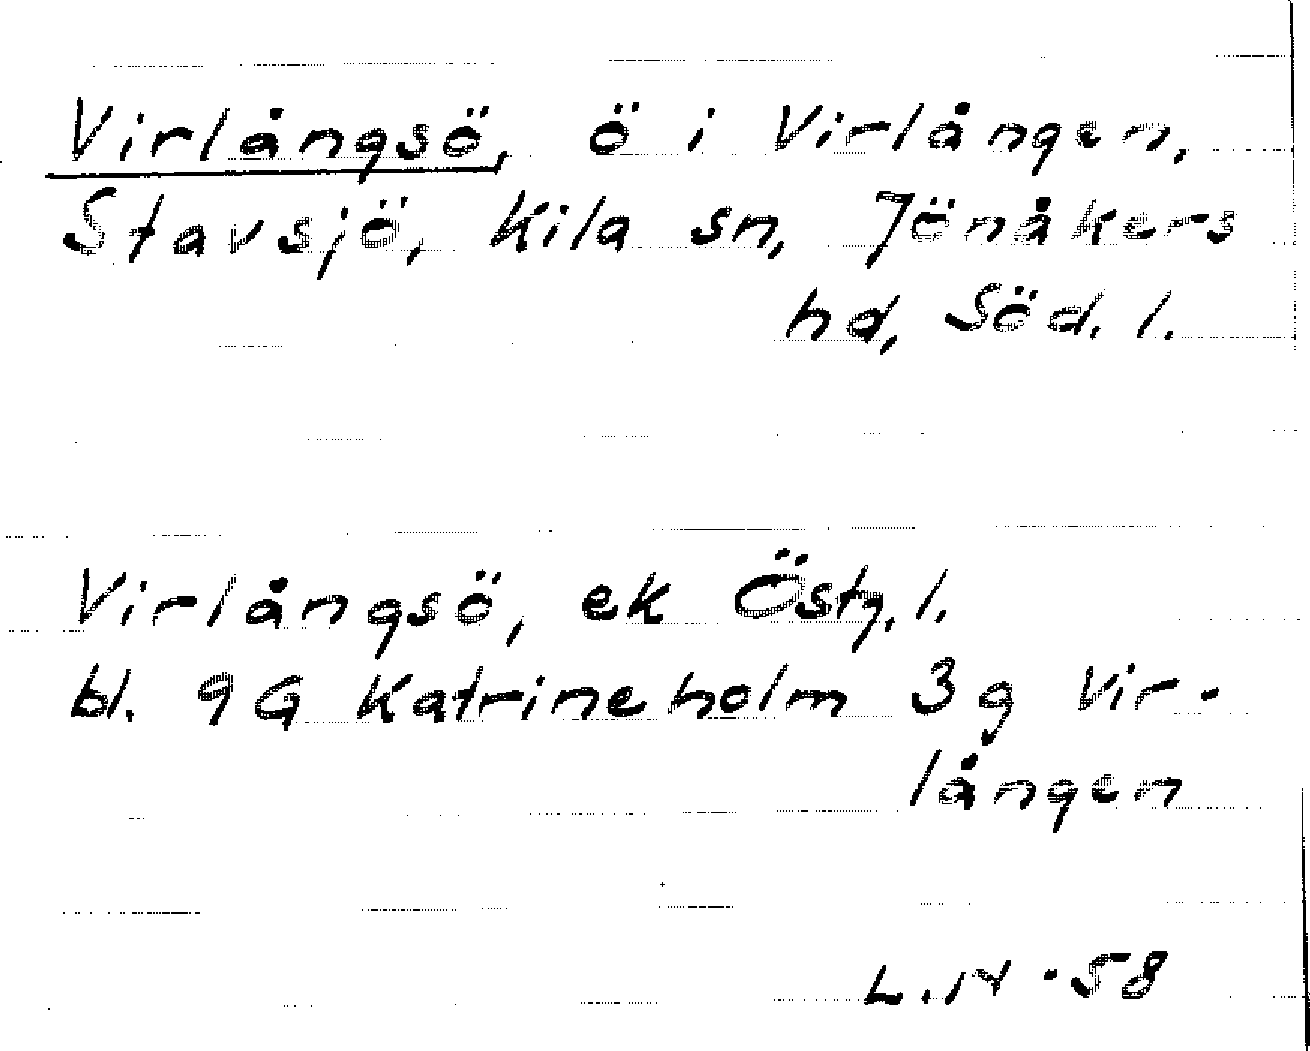 Virlångsö, ö i Virlången,
Stavsjö, Kila sn, Jönåkers
hd, Söd. l.
Virlångsö, ek Östg. l.
bl. 9G Katrineholm 3g Vir-
lången